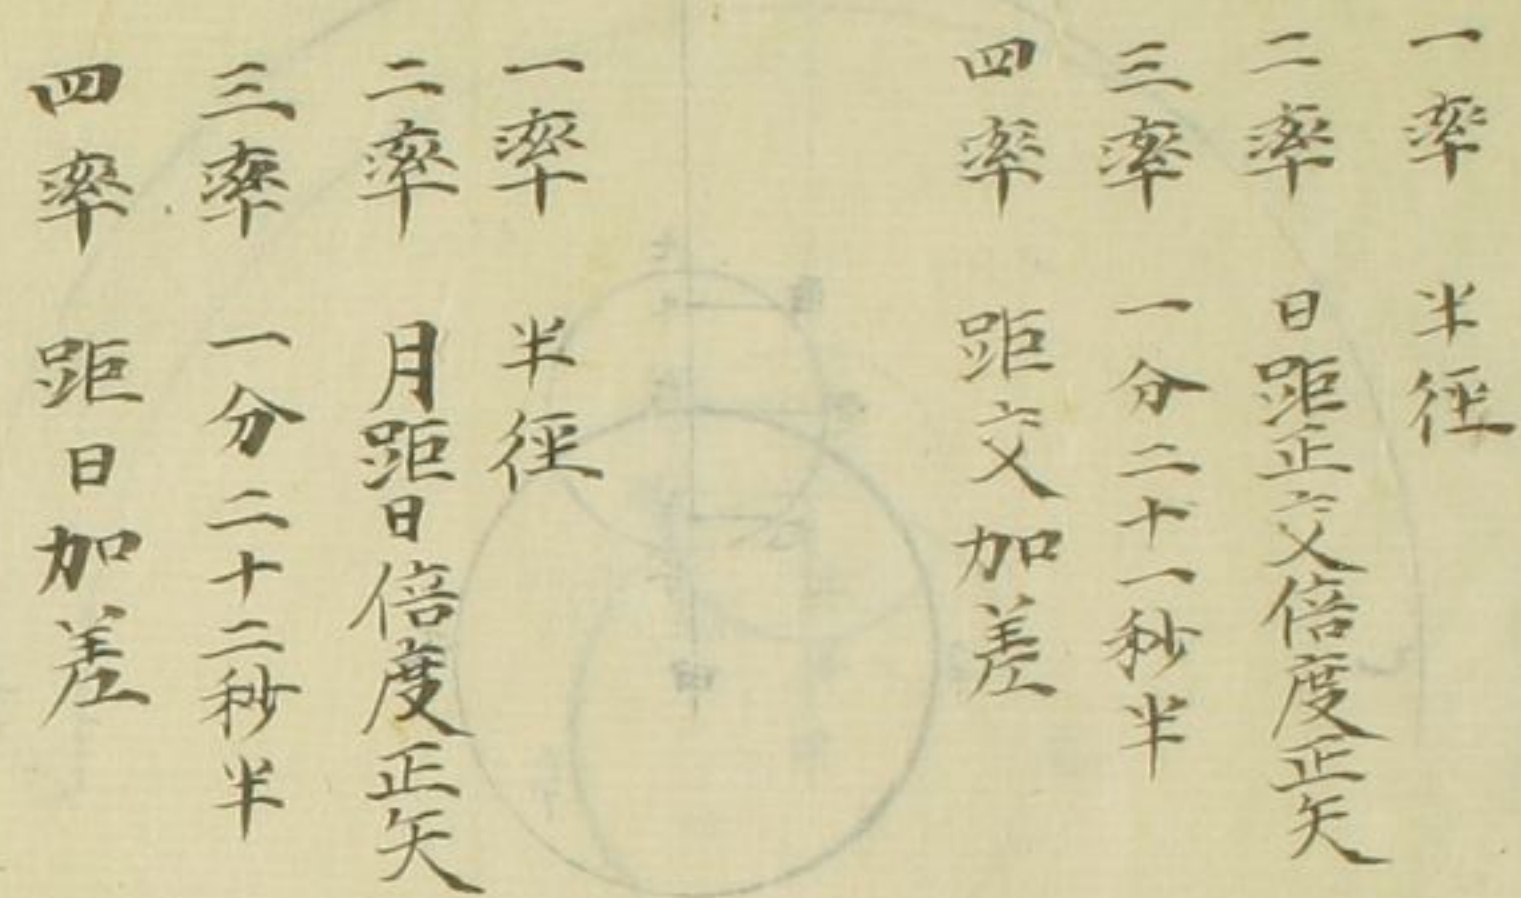 一率　半徑
二率　日距正交倍度正矢
三率　一分二十一秒半
四率　距交加差
一率　半徑
二率　月距日倍度正矢
三率　一分二十二秒半
四率　距日加差